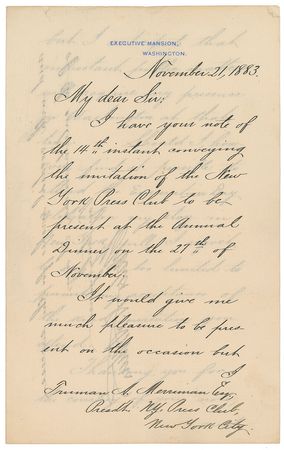 EXECUTIVE MANSION,
WASHINGTON.
November 21, 1883.
My dear Sir:
I have your note of
the 14th instant conveying
the invitation of the New
York Press Club to be
present at the Annual
Dinner on the 27th of
November.
It would give me
much pleasure to be pres-
ent on the occasion but
I
Truman A. Merriman Esq.
Presdt. N.Y. Press Club,
New York City.